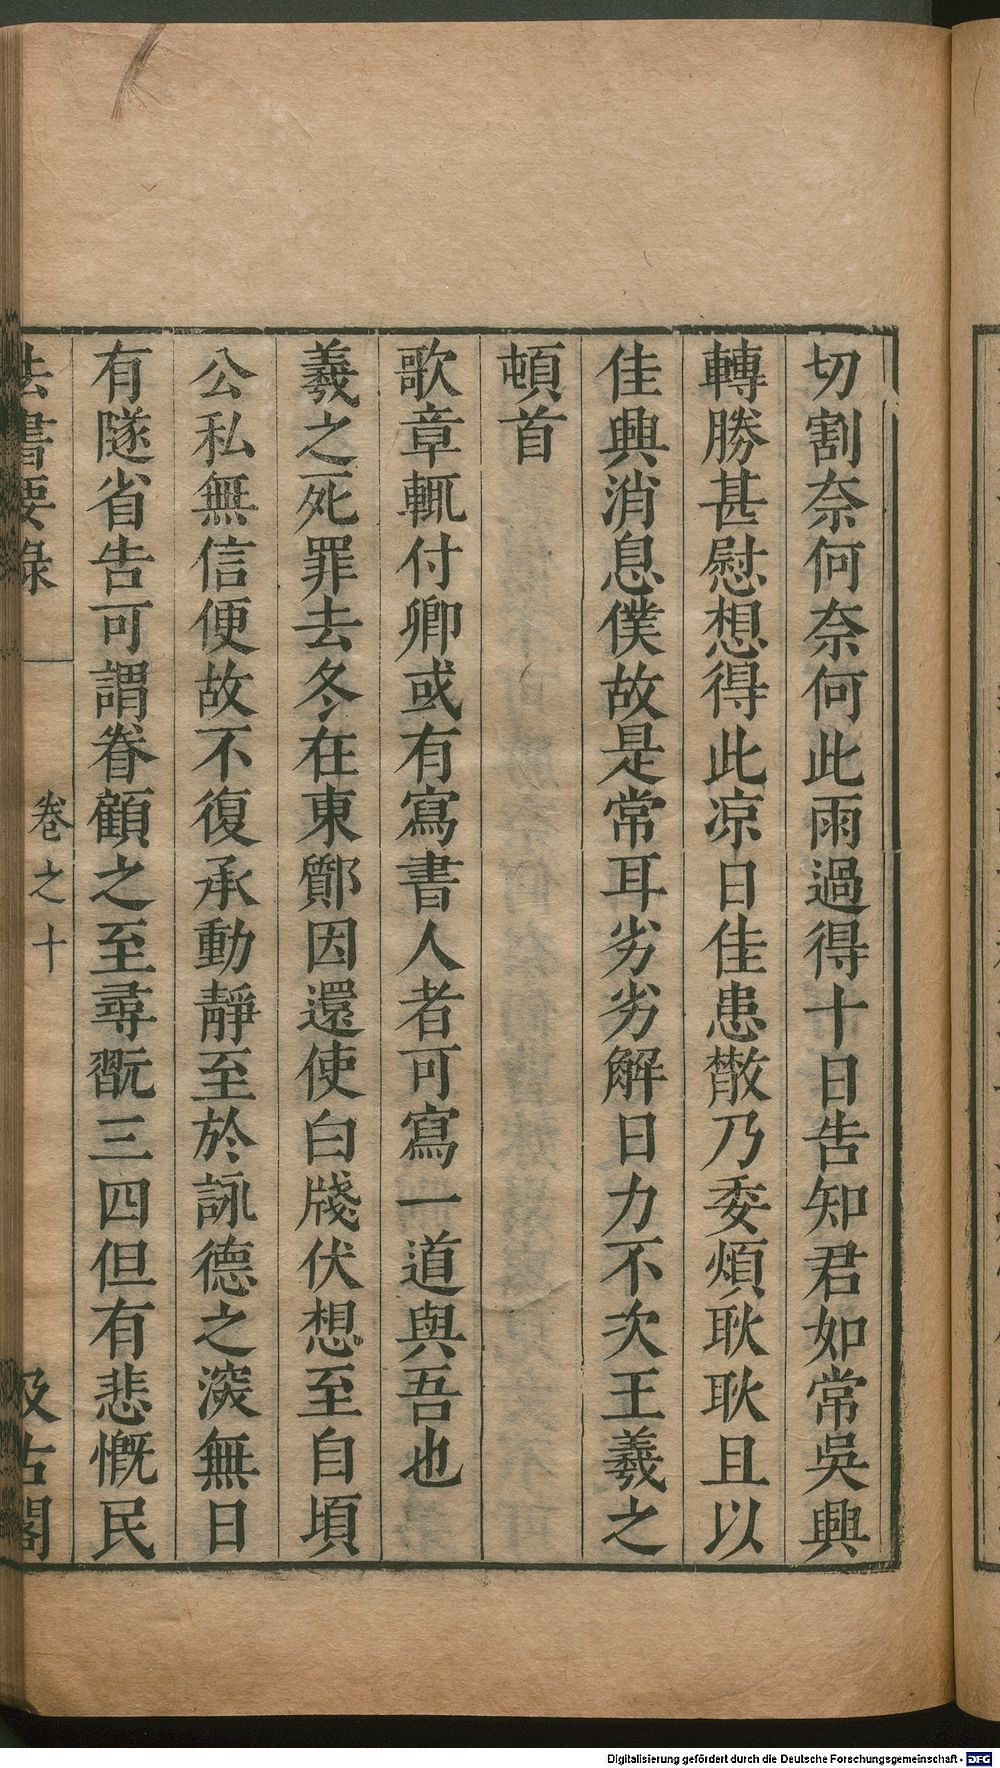 切割奈何奈何此雨過得十日告知君如常吳興
轉勝甚慰想得此凉日佳患散乃委煩耿耿且以
佳興消息僕故是常耳劣劣解日力不次王羲之
頓首
歌章輒付卿或有寫書人者可寫一道與吾也
羲之死罪去冬在東鄮因還使白牋伏想至自頃
公私無信便故不復承動靜至於詠德之深無日
有隧省告可謂眷顧之至尋翫三四但有悲慨民
法書要錄
卷之十
汲古閣
Digitalisierung gefördert durch die Deutsche Forschungsgemeinschaft - DFG